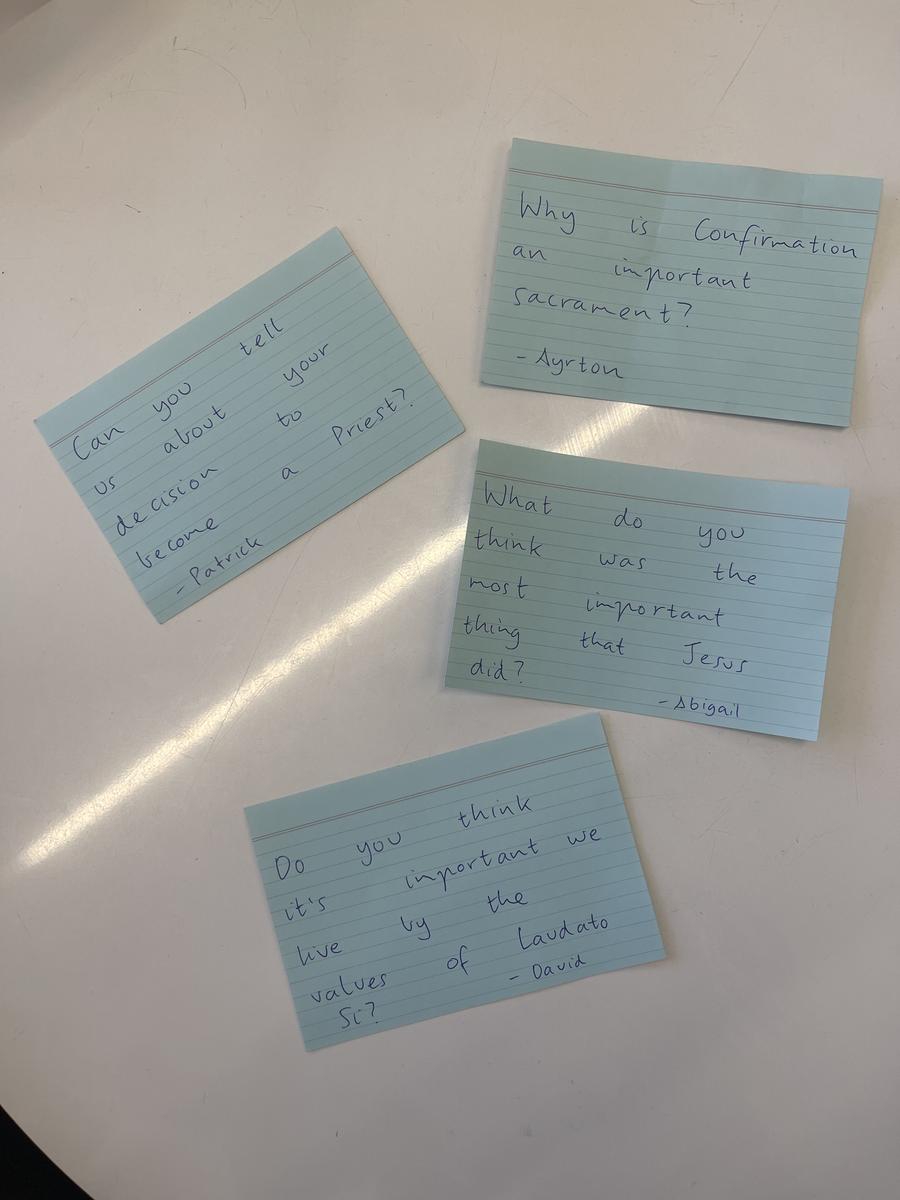 Why is Confirmation
an important
sacrament?
- Ayrton
Can you tell
us about your
decision to
become a Priest?
- Patrick
What do you
think was the
most important
thing that Jesus
did?
- Abigail
Do you think
it's important we
live by the
values of Laudato
Si?
- David